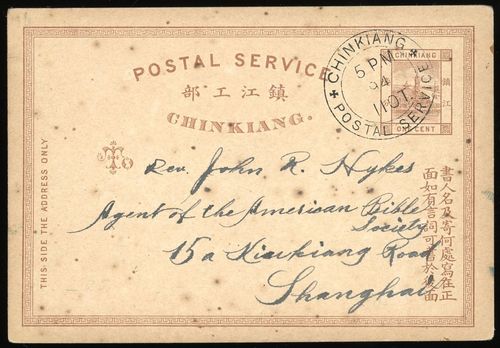 POSTAL SERVICE
部工江鎮
CHINKIANG.
CHINKIANG
5 PM
94
11 OT.
POSTAL SERVICE
CHINKIANG
鎮江
ONE CENT
THIS SIDE THE ADDRESS ONLY
To
Rev. John R. Hykes
Agent of the American Bible
Society
15a Kiukiang Road
Shanghai
書人名及寄何處寫在正
面如有言詞可書於後面